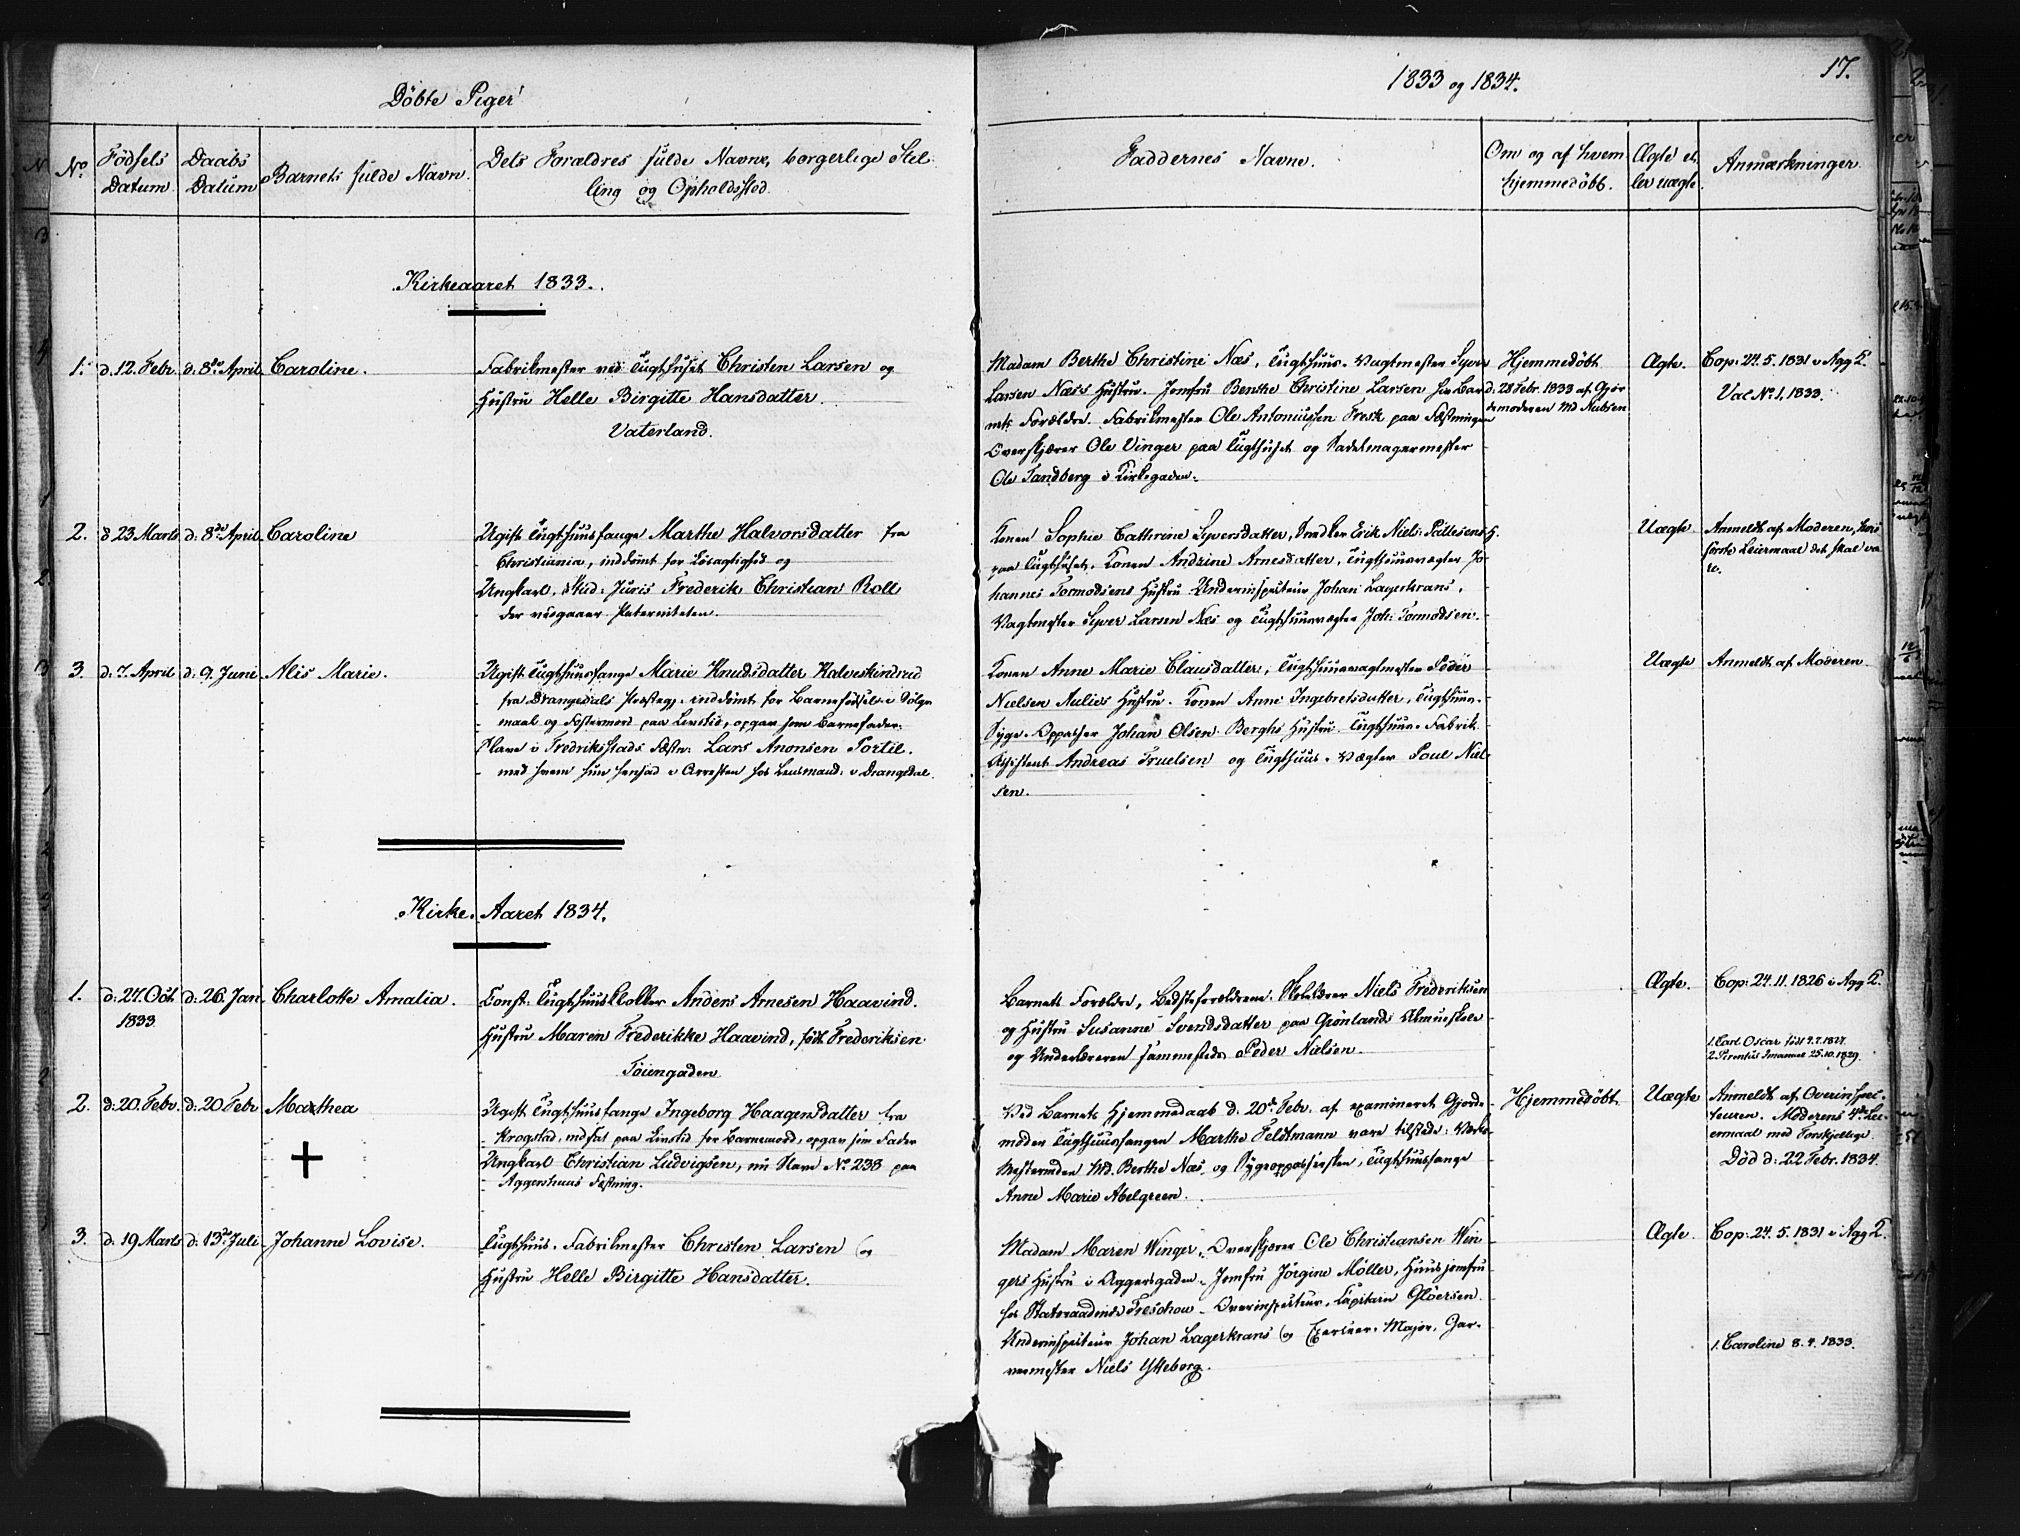 Döbte Piger
1833 og 1834.
17.
No.
Födsels Datum
Daabs Datum
Barnets fulde Navn.
Dets Forældres fulde Navne, borgerlige Stilling og Opholdssted.
Faddernes Navne.
Om og af hvem hjemmedöbt.
Ægte eller uægte.
Anmærkninger.
Kirkeaaret 1833.
1. d. 12. Febr. d. 8de April Caroline.
Fabrikmester ved Tugthuset Christen Larsen og
Hustru Helle Birgitte Hansdatter
Vaterland.
Madam Berthe Christine Næs, Tugthuus-Vagtmester Syver
Larsen Næs's Hustru. Jomfru Benthe Christine Larsen hos Bar
nets Forældre. Fabrikmester Ole Antoniussen Fresk paa Fæstningen
Overskjærer Ole Vinger paa Tugthuset og Sadelmagermester
Ole Sandberg i Kirkegaden.
Hjemmedöbt
d. 28 Febr. 1833 af Gjor
demoderen Md
Ægte.
Cop: 24.5.1831 i Agg K.
Vac No. 1, 1833.
2. d 23 Marts d. 8de April Caroline
Ugift Tugthuusfange Marthe Halvorsdatter fra
Christiania, inddömt for Lösagtighed og
Ungkarl, Stud. Juris Frederik Christian Roll
der vedgaaer Paterniteten.
Konen Sophie Cathrine Syversdatter, Erik Niels
paa Tugthuset. Konen Andrine Arnesdatter, Tugthuusvægter Jo
hannes Tormodsens Hustru. Underinspecteur Johan Lagerkrans,
Vagtmester Syver Larsen Næs og Tugthuusvægter Joh: Tormodsen.
Uægte
Anmeldt af Moderen, hvis
förste Leiermaal det skal væ
re.
3. d. 7. April d. 9. Juni Alis Marie.
Ugift Tugthuusfange Marie Knudsdatter Kalveskindrud
fra Drangedals Præstegj. inddömt for Barnefödsel i Dölgs
maal og Fostermord paa Livstid, opgav som Barnefader:
Slave i Fredriksstads Fæstn: Lars Anonsen Portil.
med hvem hun hensad i Arresten hos Lensmand i Drangedal.
Konen Anne Marie Clausdatter, Tugthuusvagtmester Peder
Nielsen Aulies Hustru. Konen Anne Ingebretsdatter, Tugthuus-
Syge-Oppasser Johan Olsen Berghs Hustru. Tugthuus-Fabrik
Assistent Andreas Truelsen og Tugthuus-Vægter Poul Niel
sen.
Uægte
Anmeldt af Moderen
Kirke-Aaret 1834.
1. d. 27. Oct 1833 d. 26. Jan Charlotte Amalia.
Const: Tugthuus Anders Arnesen Haavind.
Hustru Maren Frederikke Haavind, född Frederiksen
Töiengaden
Barnets Forældre, Bedsteforældrene. Skolelærer Niels Frederiksen
og Hustru Susanne Svendsdatter paa Grönlands Almueskole
og Underlæreren sammesteds Peder Nielsen.
Ægte.
Cop: 24.11.1826 i Agg K.
1. Carl Oscar född 9.7.1827.
2. Imanuel 25.10.1829.
2. d. 20. Febr. d. 20 Febr Marthea
+
Ugift Tugthuusfange Ingeborg Haagensdatter fra
Krogstad, indsat paa Livstid for Barnemord, opgav som Fader
Ungkarl Christian Ludvigsen, nu Slave No. 238 paa
Aggershuus Fæstning.
Ved Barnets Hjemmedaab d. 20de Febr. af examineret Gjorde
moder Tugthuusfangen Marthe Feldtmann vare tilstede: Værk
mesterinden Md. Berthe Næs, og Sygeoppassersken, Tugthuusfange
Anne Marie Abelgreen.
Hjemmedöbt
Uægte
Anmeldt af Overinspec
teuren. Moderens 4de Lei
ermaal med Forskjellige.
Död d. 22 Febr. 1834.
3. d. 19 Marts d. 13de Juli Johanne Lovise.
Tugthuus-Fabrikmester Christen Larsen og
Hustru Helle Birgitte Hansdatter.
Madam Maren Winger, Overskjærer Ole Christiansen Win
gers Hustru i Aggersgaden. Jomfru Jörgine Möller, Huusjomfru
hos Statsraadinde Treschow. Overinspecteur, Capitain Glöersen.
Underinspecteur Johan Lagerkrans og Exerceer-Major, Gar
vermester Niels Ytteborg.
Ægte.
Cop: 24.5.1831 i Agg K.
1. Caroline 8.4.1833.